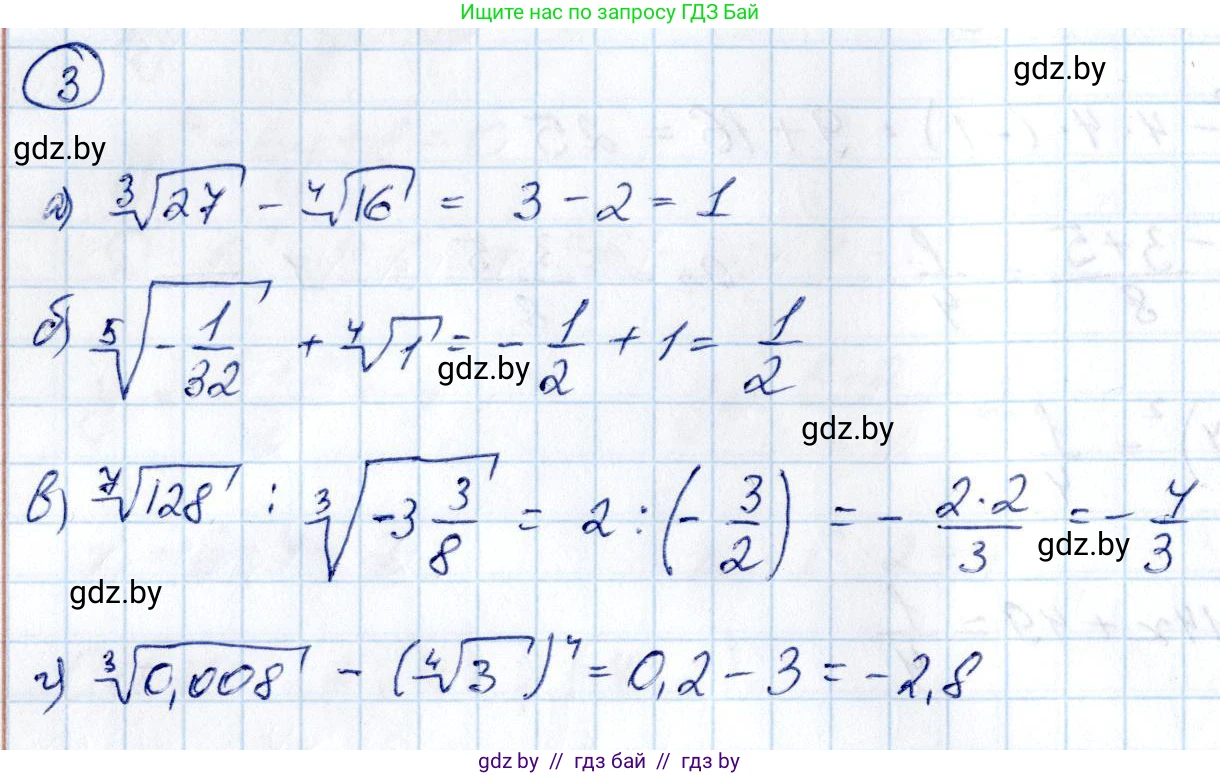 Ищите нас по запросу ГДЗ Бай
3
gdz.by
gdz.by
а) ∛27 - ∜16 = 3 - 2 = 1
б) ⁵√(-1/32) + ∜1 = - 1/2 + 1 = 1/2
gdz.by
gdz.by
в) ⁷√128 : ∛(-3 3/8) = 2 : (- 3/2) = - 2·2/3 = - 4/3
gdz.by
gdz.by
г) ∛0,008 - (∜3)⁴ = 0,2 - 3 = -2,8
gdz.by // гдз бай // гдз by